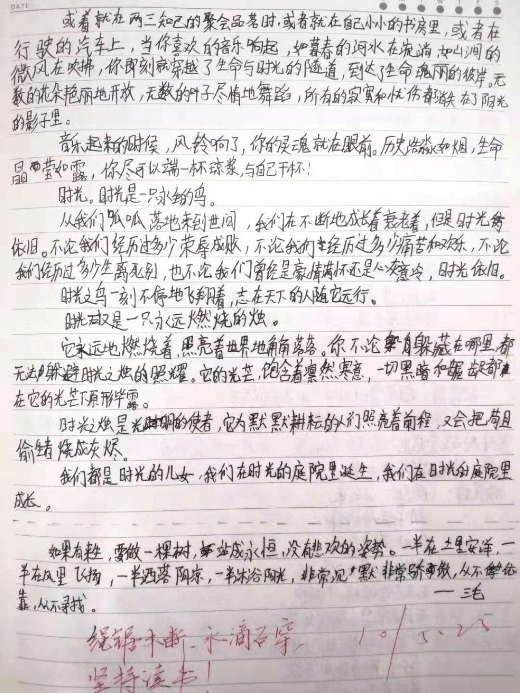 DATE
或者就在两三知己的聚会品茗时,或者就在自己小小的书房里,或者在
行驶的汽车上,当你喜欢的音乐响起,如暮春的河水在流淌,如山涧的
微风在吹拂,你即刻就穿越了生命与时光的隧道,到达了生命瑰丽的彼岸,无
数的花朵艳丽地开放,无数的叶子尽情地舞蹈,所有的寂寞和忧伤都消失在了阳光
的影子里。
音乐起来的时候,风铃响了,你的灵魂就在眼前。历史浩淼如烟,生命
晶莹如露,你尽可以端一杯琼浆,与自己干杯!
时光。时光是一只永恒的鸟。
从我们呱呱落地来到世间,我们在不断地成长着衰老着,但是时光
依旧。不论我们经历过多少荣辱成败,不论我们经历过多少痛苦和欢乐,不论
我们经历过多少生离死别,也不论我们曾经是豪情满怀还是心灰意冷,时光依旧。
时光之鸟一刻不停地飞翔着,志在天下的人随它远行。
时光又是一只永远燃烧的烛。
它永远地燃烧着,照亮着世界地角角落落。你不论躲藏在哪里,都
无法躲避时光之烛的照耀。它的光芒,饱含着凛然寒意,一切黑暗和龌龊都
在它的光芒下原形毕露。
时光之烛是光明的使者,它为默默耕耘的人们照亮着前程,又会把苟且
偷生者烧成灰烬。
我们都是时光的儿女,我们在时光的庭院里诞生,我们在时光的庭院里
成长。
如果有来生,要做一棵树,站成永恒,没有悲欢的姿势。一半在土里安详,一
半在风里飞扬,一半洒落阴凉,一半沐浴阳光,非常沉默非常骄傲,从不依
靠,从不寻找。
——三毛
绳锯木断,水滴石穿,
坚持读书!
10/5.25